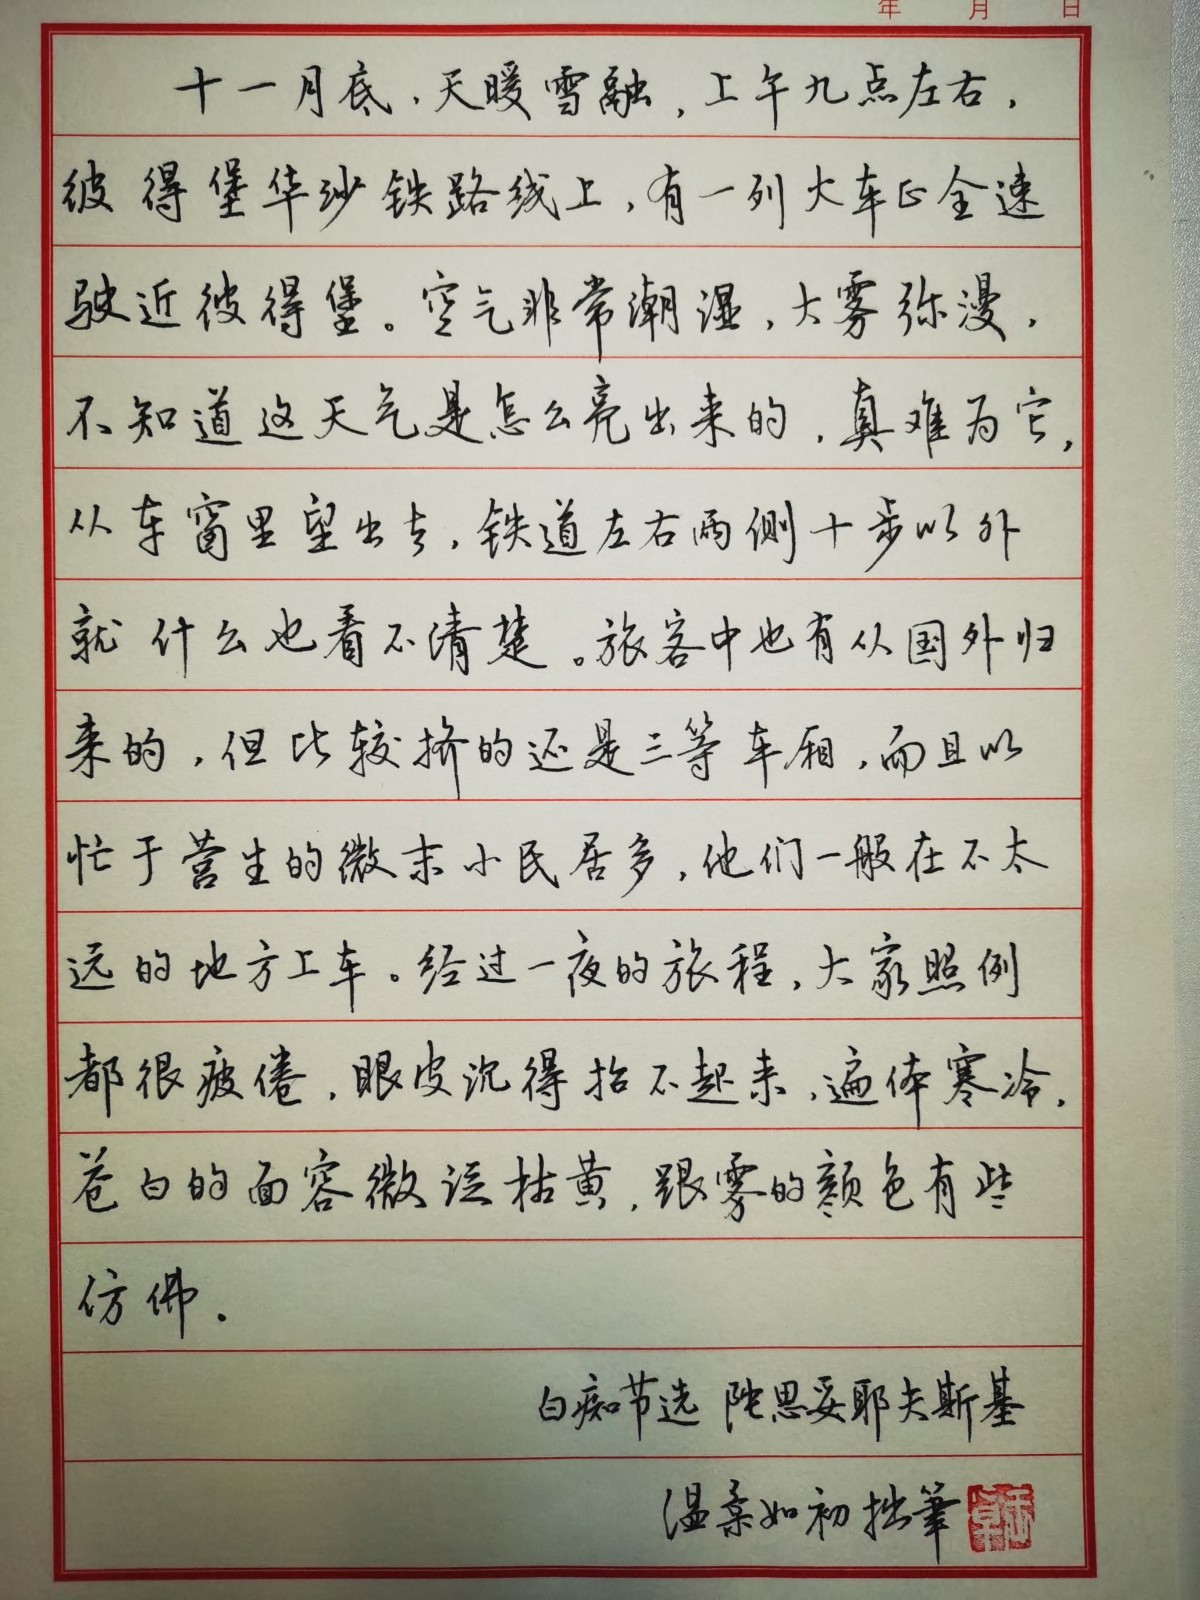 年 月 日
十一月底，天暖雪融，上午九点左右，
彼得堡华沙铁路线上，有一列火车正全速
驶近彼得堡。空气非常潮湿，大雾弥漫，
不知道这天气是怎么亮出来的，真难为它，
从车窗里望出去，铁道左右两侧十步以外
就什么也看不清楚。旅客中也有从国外归
来的，但比较挤的还是三等车厢，而且以
忙于营生的微末小民居多，他们一般在不太
远的地方上车。经过一夜的旅程，大家照例
都很疲倦，眼皮沉得抬不起来，遍体寒冷，
苍白的面容微泛枯黄，跟雾的颜色有些
仿佛。
白痴节选 陀思妥耶夫斯基
温柔如初拙筆